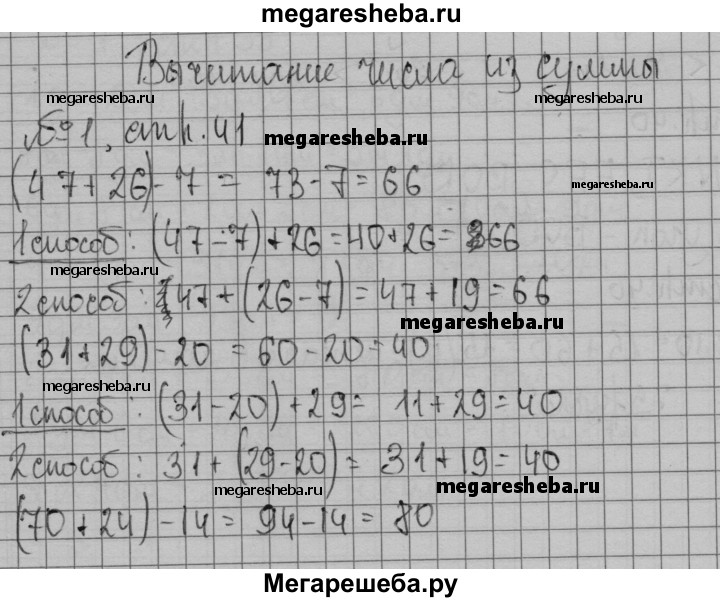 megaresheba.ru
Вычитание числа из суммы
megaresheba.ru megaresheba.ru
№1, стр. 41 megaresheba.ru
(47+26)-7 = 73-7=66 megaresheba.ru
1 способ: (47-7)+26=40+26=66
megaresheba.ru
2 способ: 47+(26-7)=47+19=66
megaresheba.ru
(31+29)-20 = 60-20=40
megaresheba.ru
1 способ: (31-20)+29= 11+29=40
2 способ: 31+(29-20)= 31+19=40
megaresheba.ru megaresheba.ru
(70+24)-14= 94-14= 80
Мегарешеба.ру